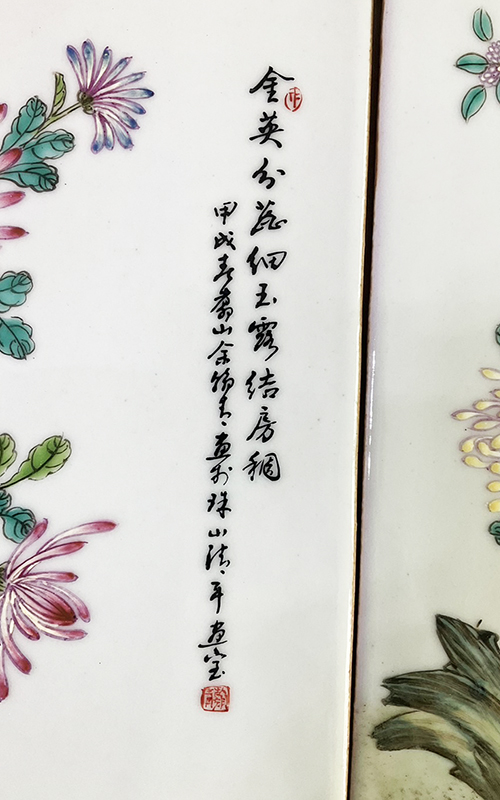 金英分蕊细玉露结房稠
甲戌春 山余 青画于珠山清平画室